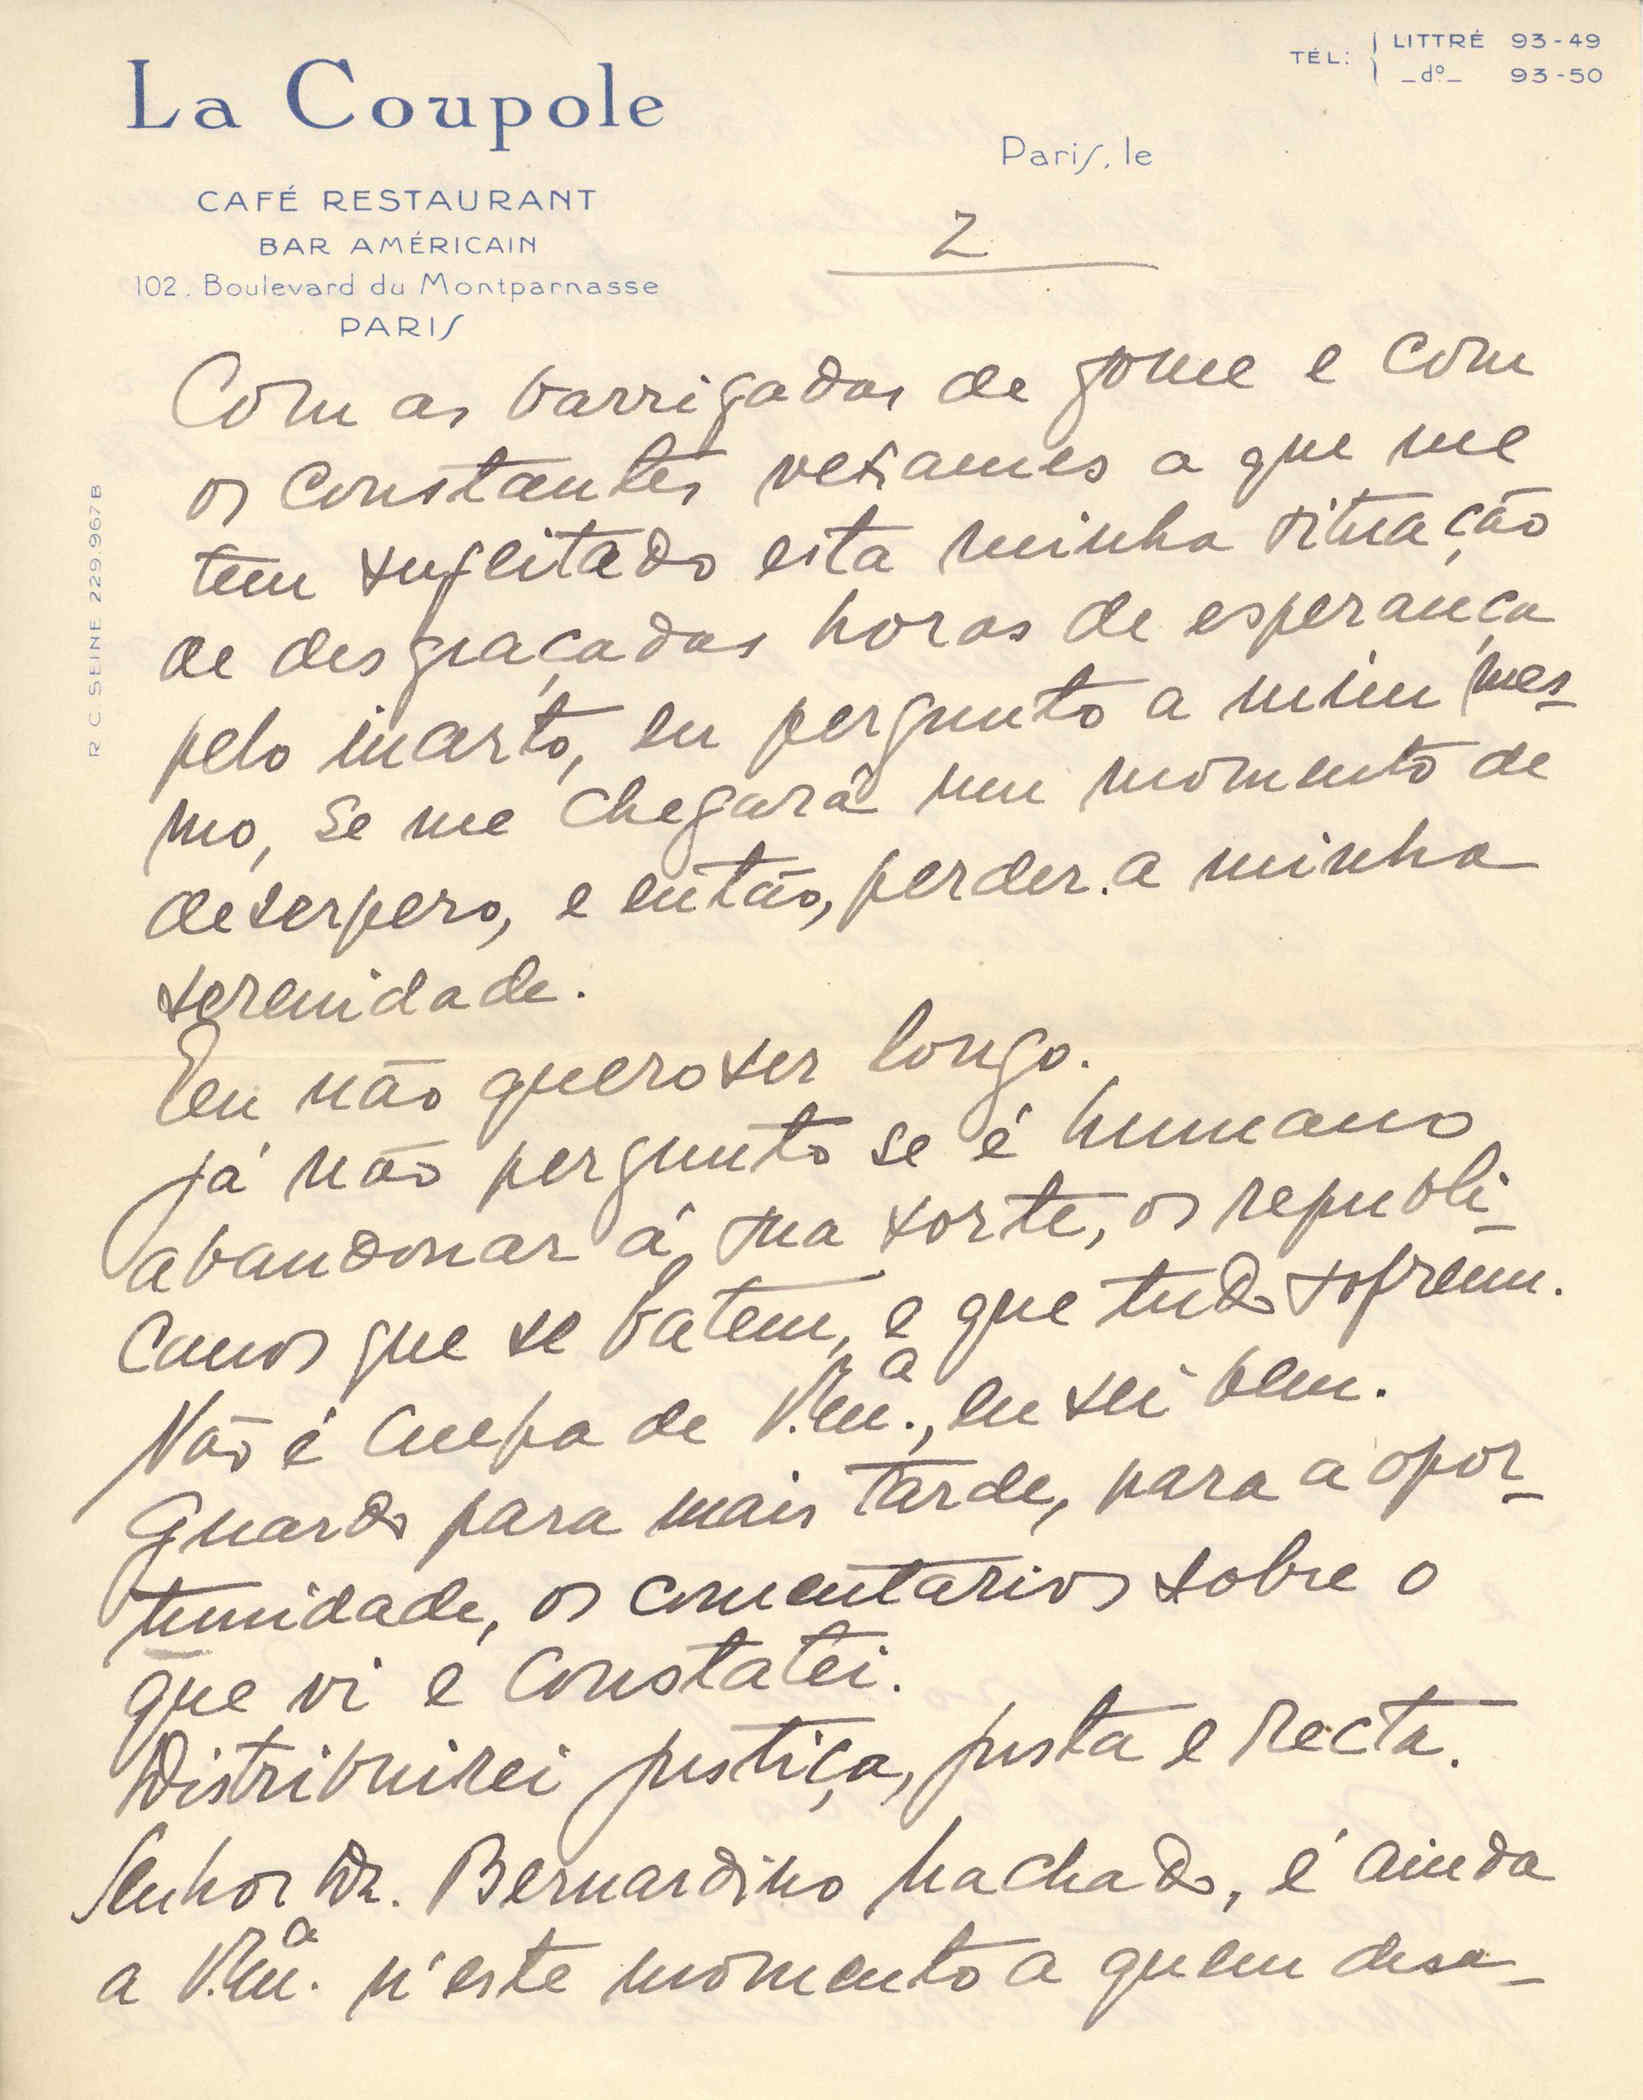 La Coupole
CAFÉ RESTAURANT
BAR AMÉRICAIN
102. Boulevard du Montparnasse
PARIS
TÉL: LITTRÉ 93-49
_dº_ 93-50
Paris, le
2
R. C. SEINE 229.967 B
Com as barrigadas de fome e com
os constantes vexames a que me
tem sugeitado esta minha situação
de desgraçadas horas de esperança
pelo incerto, eu pergunto a mim mes-
mo, se me chegará um momento de
desespero, e então, perder a minha
serenidade.
Eu não quero ser longo.
Já não pergunto se é humano
abandonar á sua sorte, os republi-
canos que se batem, e que tudo sofrem.
Não é culpa de V.Em.ª, eu sei bem.
Guardo para mais tarde, para a opor-
tunidade, os comentarios sobre o
que vi e constatei.
Distribuirei justiça, justa e recta.
Senhor Dr. Bernardino Machado, é ainda
a V.Em.ª n'este momento a quem desa-